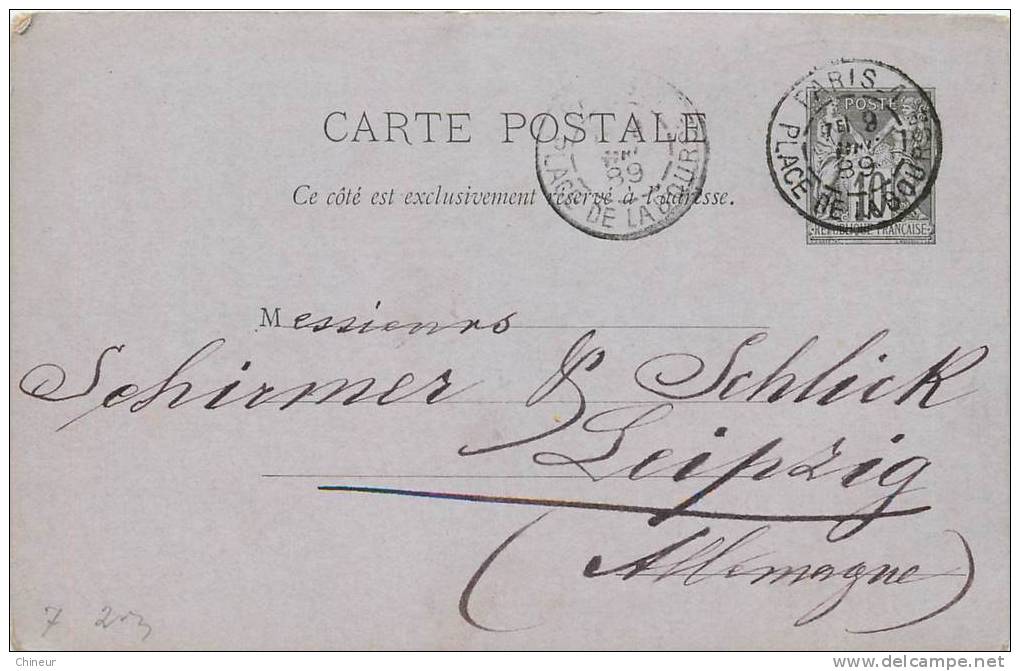 CARTE POSTALE
Ce côté est exclusivement réservé à l'adresse.
PARIS
PLACE DE LA BOURSE
89
PLACE DE LA BOURSE
9
89
POSTE
10
RÉPUBLIQUE FRANÇAISE
Messieurs
Schirmer & Schlick
Leipzig
(Allemagne)
7
Chineur
delcampe.net